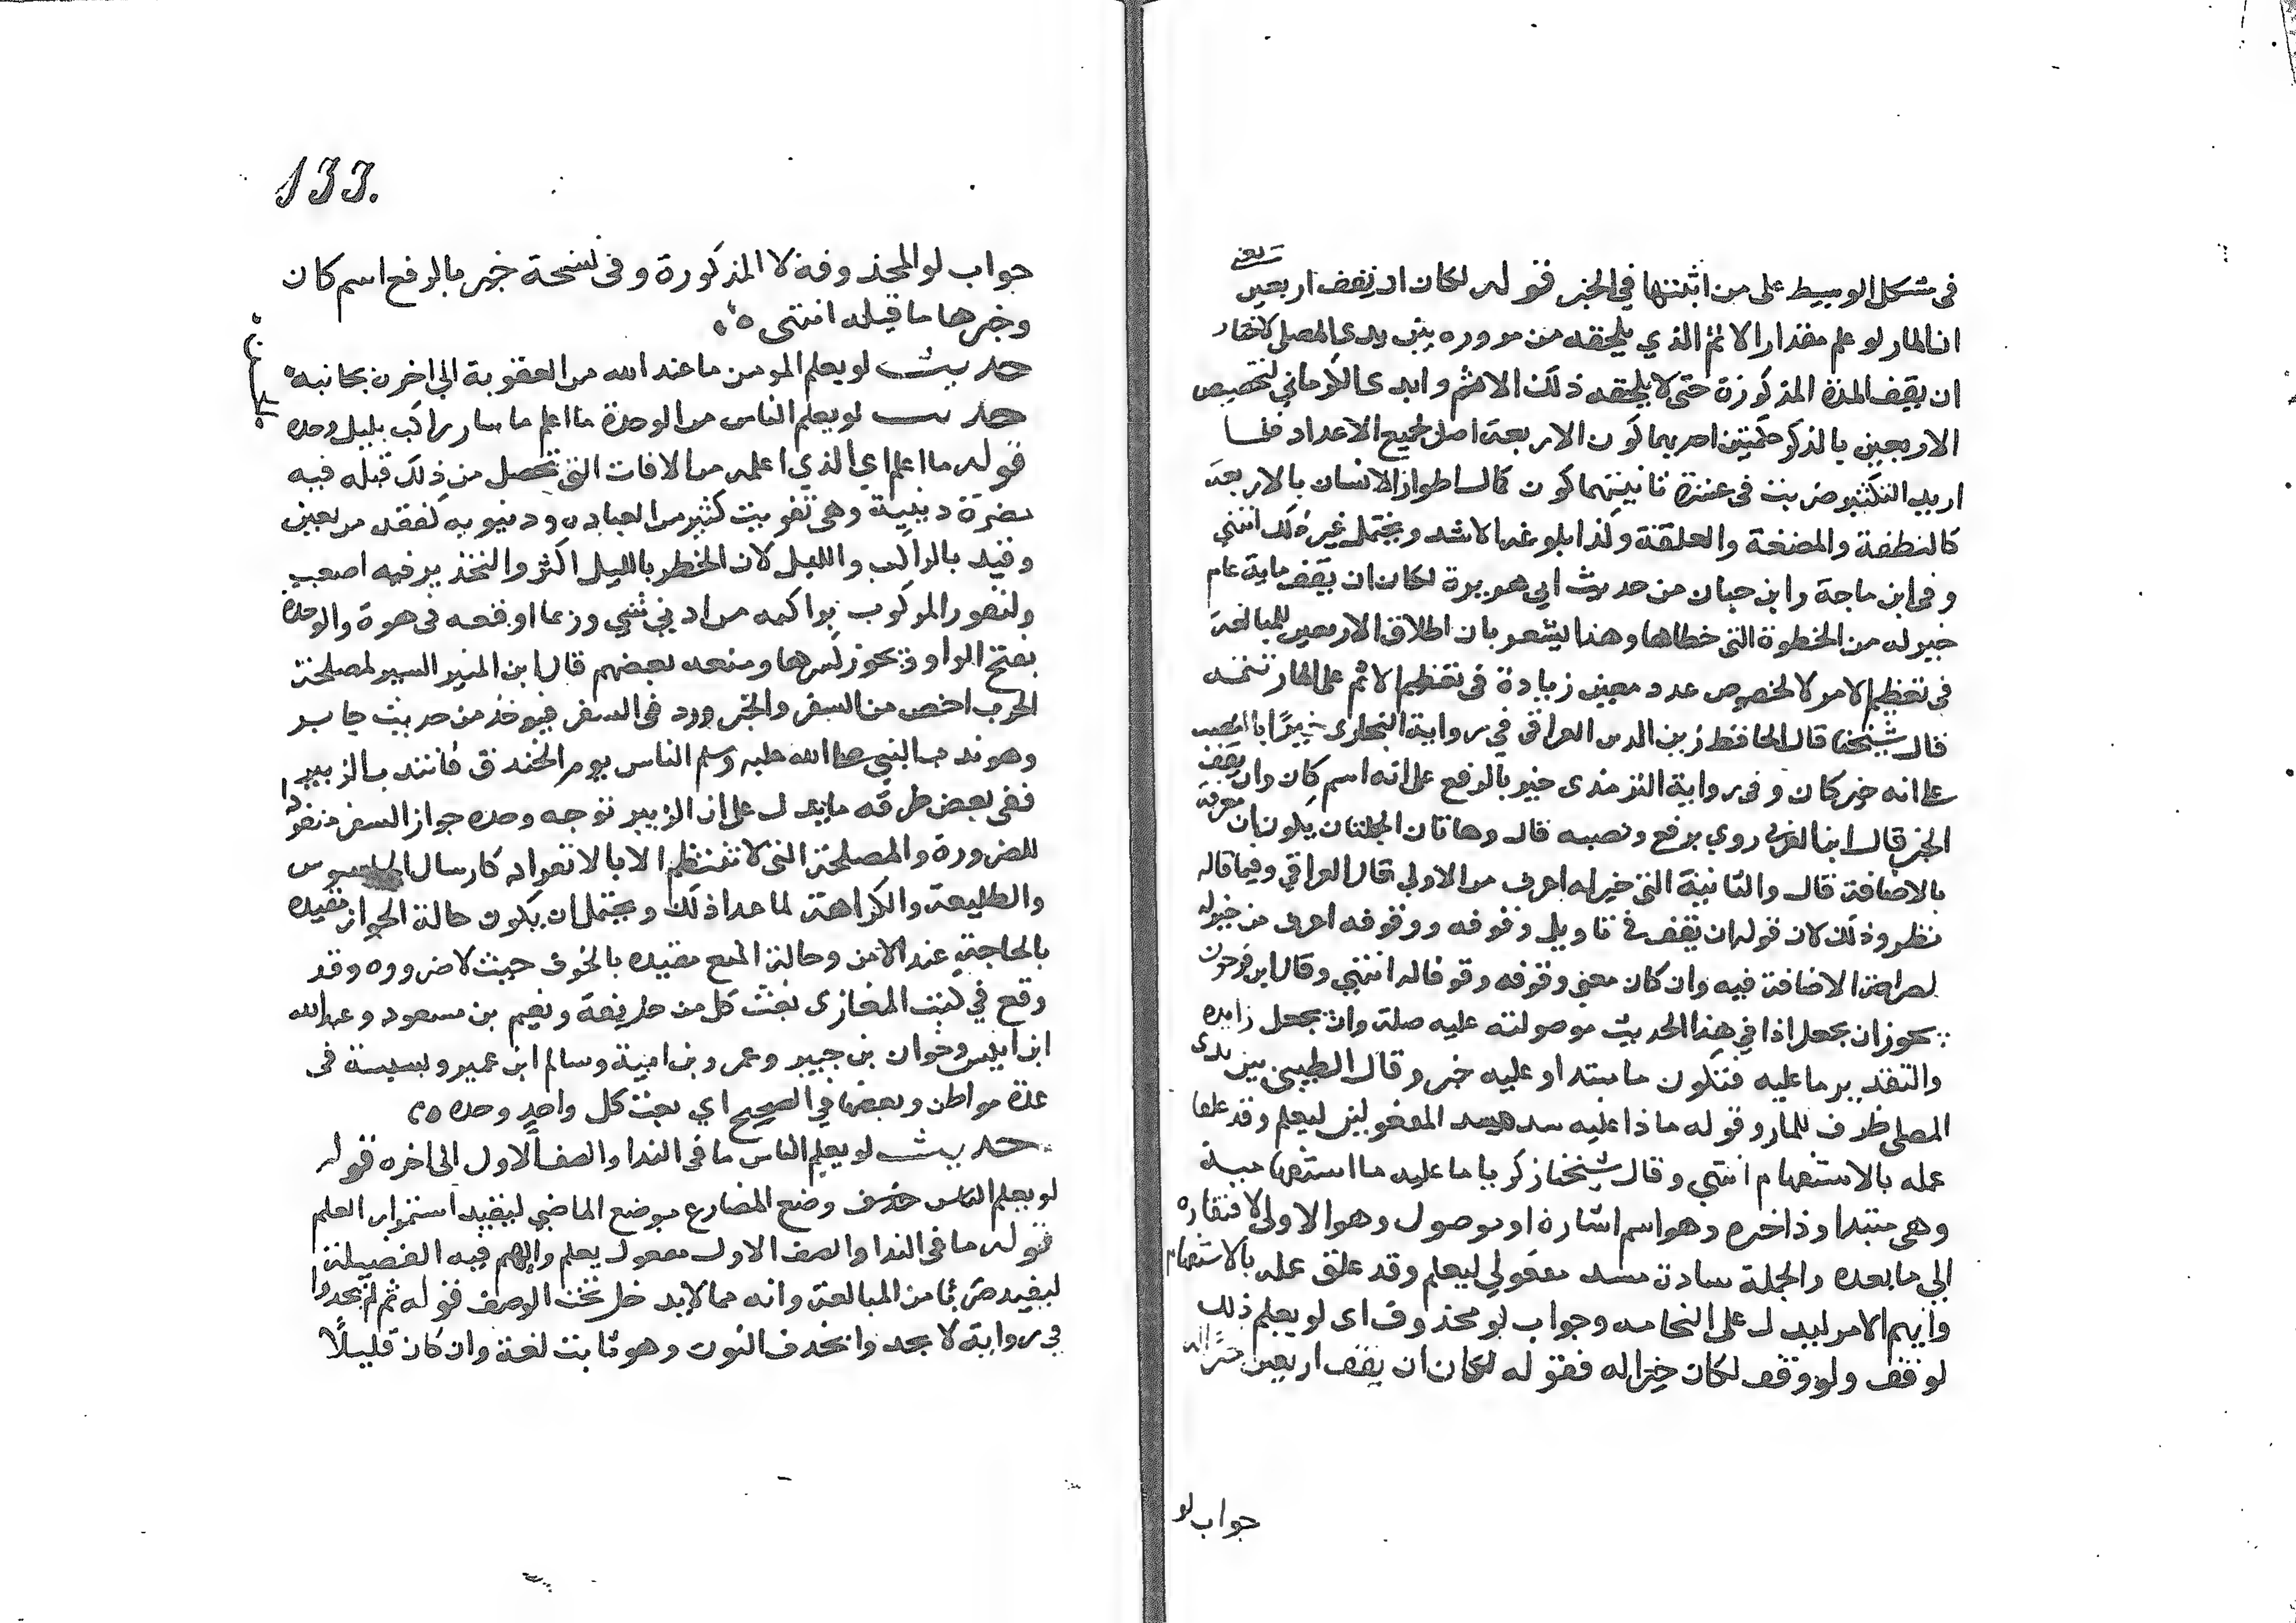 في مشكل الوسيط على من اثبتها في الخبر قوله لكان ان يقف اربعين يعني
ان المار لو علم مقدار الاثم الذي يلحقه من مروره بين يدي المصلي لاختار
ان يقف المدة المذكورة حتى لا يلحقه ذلك الاثم وابدى الكرماني لتخصيص
الاربعين بالذكر حكمتين احديهما كون الاربعة اصل لجميع الاعداد فلما
اريد التكثير ضربت في عشرة ثانيتهما كون كمال اطوار الانسان بالاربعة
كالنطفة والمضغة والعلقة وكذا بلوغه الاشد ويحتمل غير ذلك انتهى
وفي ابن ماجة وابن حبان من حديث ابي هريرة لكان ان يقف ماية عام
خير له من الخطوة التي خطاها وهذا يشعر بان اطلاق الاربعين للمبالغة
في تعظيم الامر لا لخصوص عدد معين زيادة في تعظيم الاثم على المار تتمة
قال شيخنا قال الحافظ زين الدين العراقي في رواية البخاري خيرا بالنصب
على انه خبر كان وفي رواية الترمذي خير بالرفع على انه اسم كان وان يقف
الخبر قال ابن العربي روي برفع ونصبه قال وهاتان الجملتان يكونان معرفة
بالاضافة قال والثانية التي خير له اعرف من الاولي قال العراقي وفيما قاله
نظر وذلك لان قوله ان يقف في تاويل وقوفه ووقوفه اعرف من خير له
لصراحة الاضافة فيه وان كان معنى وقوفه وقوفا له انتهى وقال ابن فرحون
يجوز ان يجعل اذا في هذا الحديث موصولته عليه صلة وان يجعل زايده
والتقدير ما عليه فتكون ما مبتدا وعليه خبر وقال الطيبي بين يدى
المصلي ظرف للمار وقوله ماذا عليه سد مسد المفعولين ليعلم وقد علق
عمله بالاستفهام انتهى وقال شيخنا زكريا ما عليه ما استفهامية
وهي مبتدا وذا خبره وهو اسم اشارة او موصول وهو الاولى لافتقاره
الي ما بعده والجملة سادة مسد مفعولي ليعلم وقد علق عمله بالاستفهام
وابهم الامر ليدل على الفخامه وجواب لو محذوف اى لو يعلم ذلك
لوقف ولو وقف لكان خيرا له فقوله لكان ان يقف اربعين خيرا له
جواب لو
133.
جواب لو المحذوفة لا المذكورة وفي نسخة خير بالرفع اسم كان
وخبرها ما قبله انتهى
حديث لو يعلم المومن ما عند الله من العقوبة الي اخره بجانبه
حديث لو يعلم الناس من الوحدة ما اعلم ما سار راكب بليل وحده
قوله ما اعلم اي الذي اعلمه من الافات التي تحصل من ذلك قبله فيه
مضرة دينية وهي تفويت كثير من العباده ودنيويه لفقد من يعين
وقيد بالراكب والليل لان الخطر بالليل اكثر والتحذير فيه اصعب
ولنفور المركوب براكبه من ادني شي وربما اوقعه في هوة والوحدة
بفتح الواو ويجوز كسرها ومنعه بعضهم قال ابن المنير السير لمصلحة
الحرب اخص من السفر والخبر ورد في السفر فيوخذ من حديث جابر
وهو ندب النبي صلى الله عليه وسلم الناس يوم الخندق فانتدب الزبير
ففي بعض طرقه ما يدل على ان الزبير توجه وحده جواز السفر منفردا
للضرورة والمصلحة التي لا تنتظم الا بالانفراد كارسال الجاسوس
والطليعة والكراهة لما عدا ذلك ويحتمل ان يكون حالة الجواز مقيده
بالحاجة عند الامن وحالة المنع مقيده بالخوف حيث لا ضروره وقد
وقع في كتب المغازى بعث كل من حذيفة ونعيم بن مسعود وعبد الله
ابن انيس وخوان بن جبير وعمرو بن امية وسالم ابن عمير وبسيسة في
عدة مواطن وبعضها في الصحيح اي بعث كل واحد وحده
حديث لو يعلم الناس ما في الندا والصف الاول الى اخره قوله
لو يعلم الناس وضع المضارع موضع الماضي ليفيد استمرار العلم
قوله ما في الندا والصف الاول مفعول يعلم وابهم فيه الفضيلة
ليفيد ضربا من المبالغة وانه مما لا يدخل تحت الوصف قوله ثم لم يجدوا
في رواية لا يجدوا بحذف النون وهو ثابت لغة وان كان قليلا